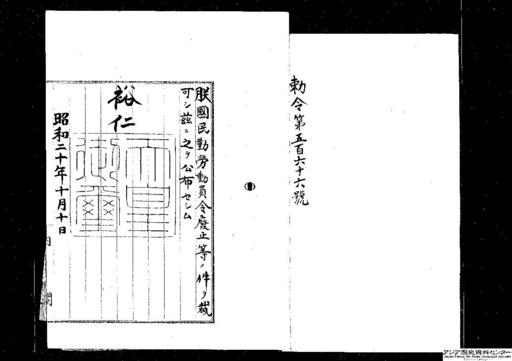 勅令第五百六十六號
朕國民勤勞動員令廢止等ノ件ヲ裁
可シ茲ニ之ヲ公布セシム
裕仁
天皇
御璽
昭和二十年十月十日
アジア歴史資料センター